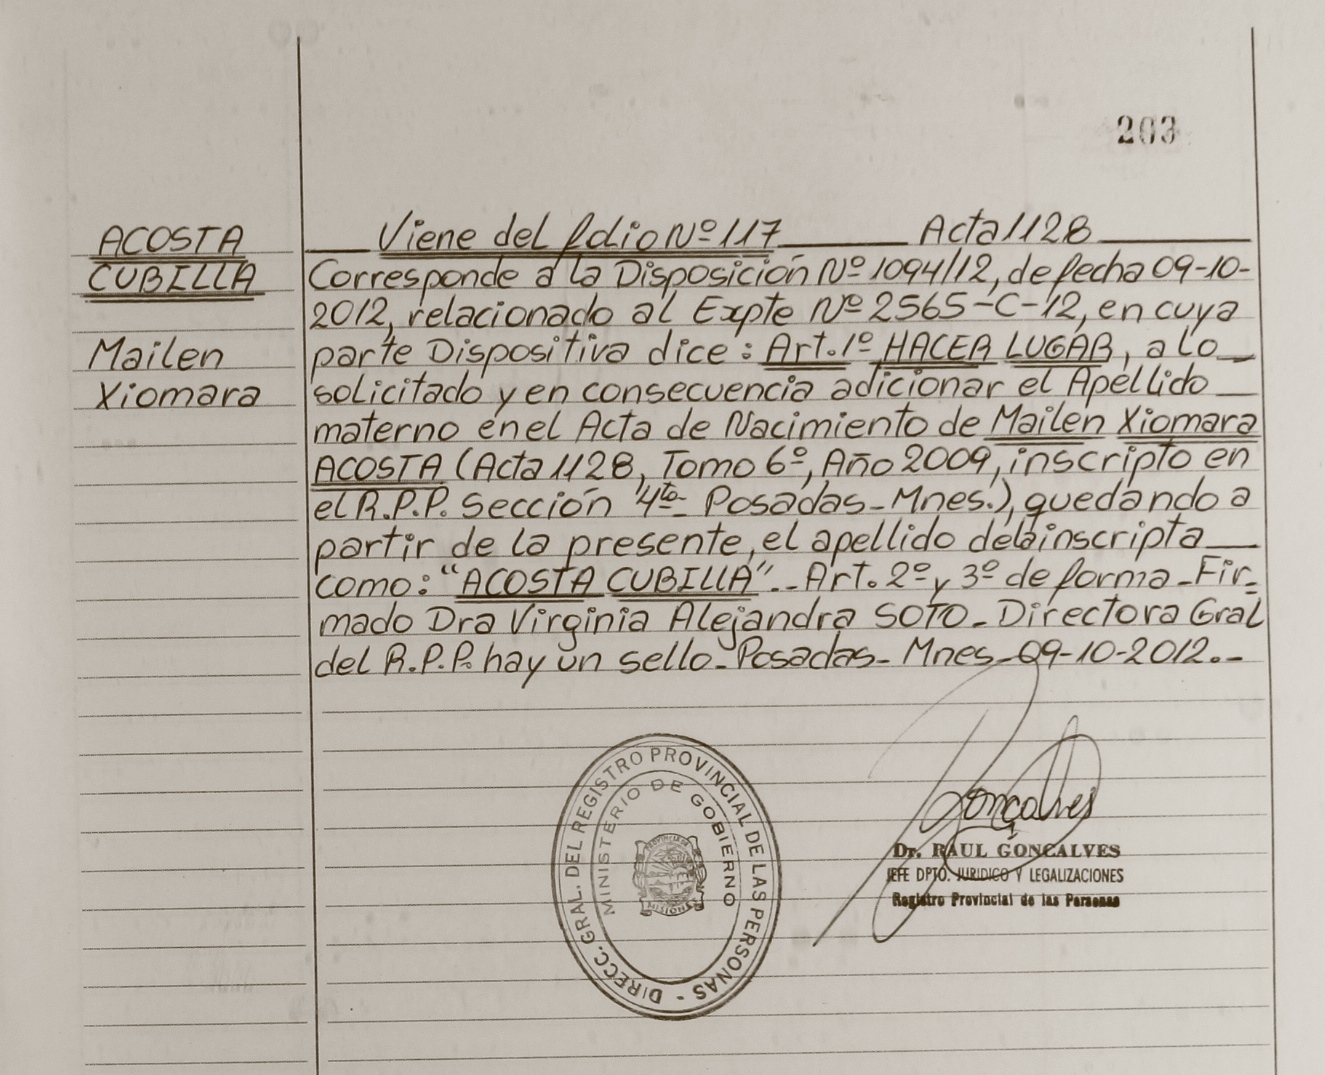 203
ACOSTA
CUBILLA
Mailen
Xiomara
Viene del folio Nº 117 Acta 1128
Corresponde a la Disposición Nº 1094/12, de fecha 09-10-
2012, relacionado al Expte Nº 2565-C-12, en cuya
parte Dispositiva dice: Art. 1º HACER LUGAR, a lo
solicitado y en consecuencia adicionar el Apellido
materno en el Acta de Nacimiento de Mailen Xiomara
ACOSTA (Acta 1128, Tomo 6º, Año 2009, inscripto en
el R.P.P. Sección 4to- Posadas- Mnes.), quedando a
partir de la presente, el apellido de la inscripta
como: "ACOSTA CUBILLA". Art. 2º y 3º de forma - Fir-
mado Dra Virginia Alejandra SOTO - Directora Gral
del R.P.P. hay un sello - Posadas - Mnes - 09-10-2012.-
DIRECC. GRAL. DEL REGISTRO PROVINCIAL DE LAS PERSONAS -
MINISTERIO DE GOBIERNO
PROVINCIA DE
MISIONES
Gonçalves
Dr. RAUL GONCALVES
JEFE DPTO. JURIDICO Y LEGALIZACIONES
Registro Provincial de las Personas